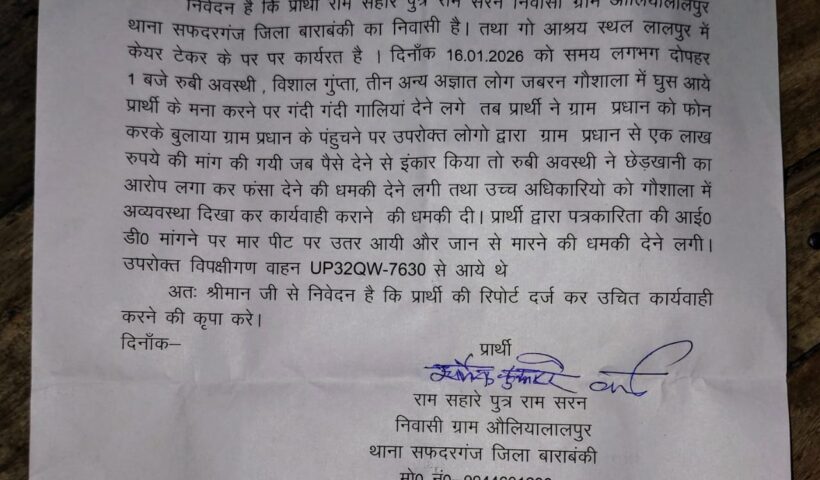 निवेदन है कि प्रार्थी राम सहारे पुत्र राम सरन निवासी ग्राम औलियालालपुर
थाना सफदरगंज जिला बाराबंकी का निवासी है। तथा गो आश्रय स्थल लालपुर में
केयर टेकर के पर पर कार्यरत है । दिनाँक 16.01.2026 को समय लगभग दोपहर
1 बजे रुबी अवस्थी , विशाल गुंप्ता, तीन अन्य अज्ञात लोग जबरन गौशाला में घुस आये
प्रार्थी के मना करने पर गंदी गंदी गालियां देने लगे तब प्रार्थी ने ग्राम प्रधान को फोन
करके बुलाया ग्राम प्रधान के पंहुचने पर उपरोक्त लोगो द्वारा ग्राम प्रधान से एक लाख
रुपये की मांग की गयी जब पैसे देने से इंकार किया तो रुबी अवस्थी ने छेड़खानी का
आरोप लगा कर फंसा देने की धमकी देने लगी तथा उच्च अधिकारियो को गौशाला में
अव्यवस्था दिखा कर कार्यवाही कराने की धमकी दी। प्रार्थी द्वारा पत्रकारिता की आई0
डी0 मांगने पर मार पीट पर उतर आयी और जान से मारने की धमकी देने लगी।
उपरोक्त विपक्षीगण वाहन UP32QW-7630 से आये थे
अतः श्रीमान जी से निवेदन है कि प्रार्थी की रिपोर्ट दर्ज कर उचित कार्यवाही
करने की कृपा करे।
दिनाँक–
प्रार्थी
राम सहारे पुत्र राम सरन
निवासी ग्राम औलियालालपुर
थाना सफदरगंज जिला बाराबंकी
मो0 नं0